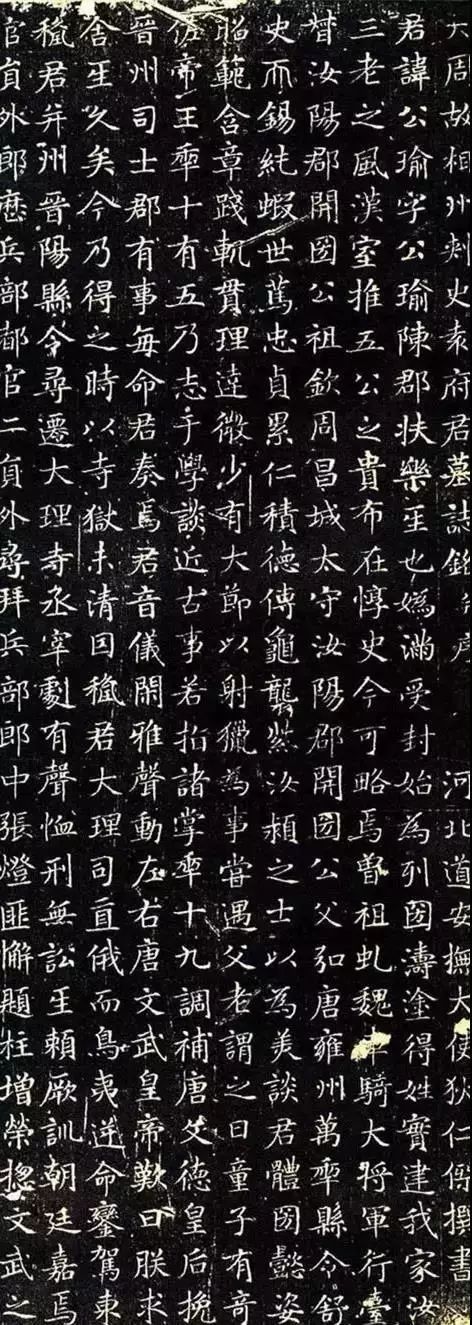 大周故相州刾史袁府君墓誌銘并序 河北道安撫大使狄仁傑撰書
君諱公瑜字公瑜陳郡扶樂𤯔也媯滿受封始為列圀濤塗得姓實建我家汝
三老之風漢室推五公之貴布在惇史今可略焉曾祖虬魏車騎大將軍行臺
督汝陽郡開圀公祖欽周昌城太守汝陽郡開圀公父弘唐雍州萬𠡦縣令舒
史而錫純嘏世篤忠貞累仁積德傳龜襲紫汝潁之士以為美談君體圀懿姿
昭範含章踐軌貫理達微少有大節以射獵為事嘗遇父老謂之曰童子有奇
佐帝王𠡦十有五乃志于學談近古事若指諸掌𠡦十九調補唐文德皇后挽
晉州司士郡有事每命君奏焉君音儀閑雅聲動左右唐文武皇帝歎曰朕求
舍𤯔久矣今乃得之時以寺獄未清因穐君大理司直俄而鳥夷逆命鑾駕東
穐君并州晉陽縣令尋遷大理寺丞宰劇有聲恤刑無訟𤯔賴厥訓朝廷嘉焉
官員外郎歷兵部都官二員外尋拜兵部郎中張燈匪懈題柱增榮揔文武之